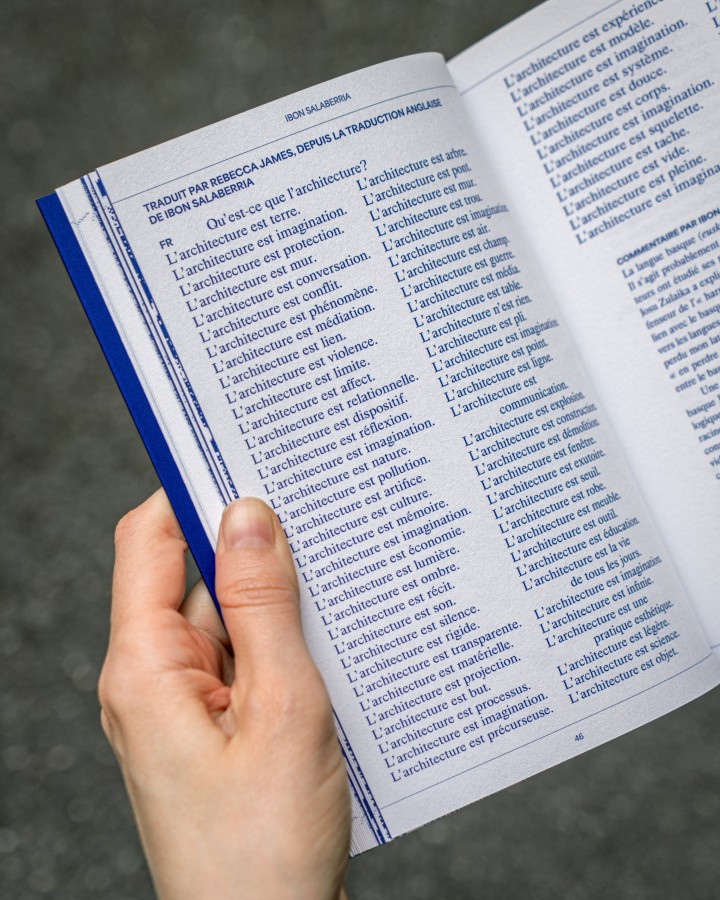 IBON SALABERRIA
TRADUIT PAR REBECCA JAMES, DEPUIS LA TRADUCTION ANGLAISE
DE IBON SALABERRIA
FR
Qu'est-ce que l'architecture?
L'architecture est terre.
L'architecture est imagination.
L'architecture est protection.
L'architecture est mur.
L'architecture est conversation.
L'architecture est conflit.
L'architecture est phénomène.
L'architecture est médiation.
L'architecture est lien.
L'architecture est violence.
L'architecture est limite.
L'architecture est affect.
L'architecture est relationnelle.
L'architecture est dispositif.
L'architecture est réflexion.
L'architecture est imagination.
L'architecture est nature.
L'architecture est pollution.
L'architecture est artifice.
L'architecture est culture.
L'architecture est mémoire.
L'architecture est imagination.
L'architecture est économie.
L'architecture est lumière.
L'architecture est ombre.
L'architecture est récit.
L'architecture est son.
L'architecture est silence.
L'architecture est rigide.
L'architecture est transparente.
L'architecture est matérielle.
L'architecture est projection.
L'architecture est but.
L'architecture est processus.
L'architecture est imagination.
L'architecture est précurseuse.
L'architecture est arbre.
L'architecture est pont.
L'architecture est mur.
L'architecture est trou.
L'architecture est imagination.
L'architecture est air.
L'architecture est champ.
L'architecture est guerre.
L'architecture est média.
L'architecture est table.
L'architecture n'est rien.
L'architecture est pli.
L'architecture est imagination.
L'architecture est point.
L'architecture est ligne.
L'architecture est
communication.
L'architecture est explosion.
L'architecture est construction.
L'architecture est démolition.
L'architecture est fenêtre.
L'architecture est exutoire.
L'architecture est seuil.
L'architecture est robe.
L'architecture est meuble.
L'architecture est outil.
L'architecture est éducation.
L'architecture est la vie
de tous les jours.
L'architecture est imagination.
L'architecture est infinie.
L'architecture est une
pratique esthétique.
L'architecture est légère.
L'architecture est science.
L'architecture est objet.
46
L'architecture est expérience.
L'architecture est modèle.
L'architecture est imagination.
L'architecture est système.
L'architecture est douce.
L'architecture est corps.
L'architecture est imagination.
L'architecture est squelette.
L'architecture est tache.
L'architecture est vide.
L'architecture est pleine.
L'architecture est
COMMENTAIRE PAR IBON
La langue basque
Il s'agit probablement
ont étudié ses
Josu Zulaika a
lien avec le
vers les
perdu mon
« en
entre le